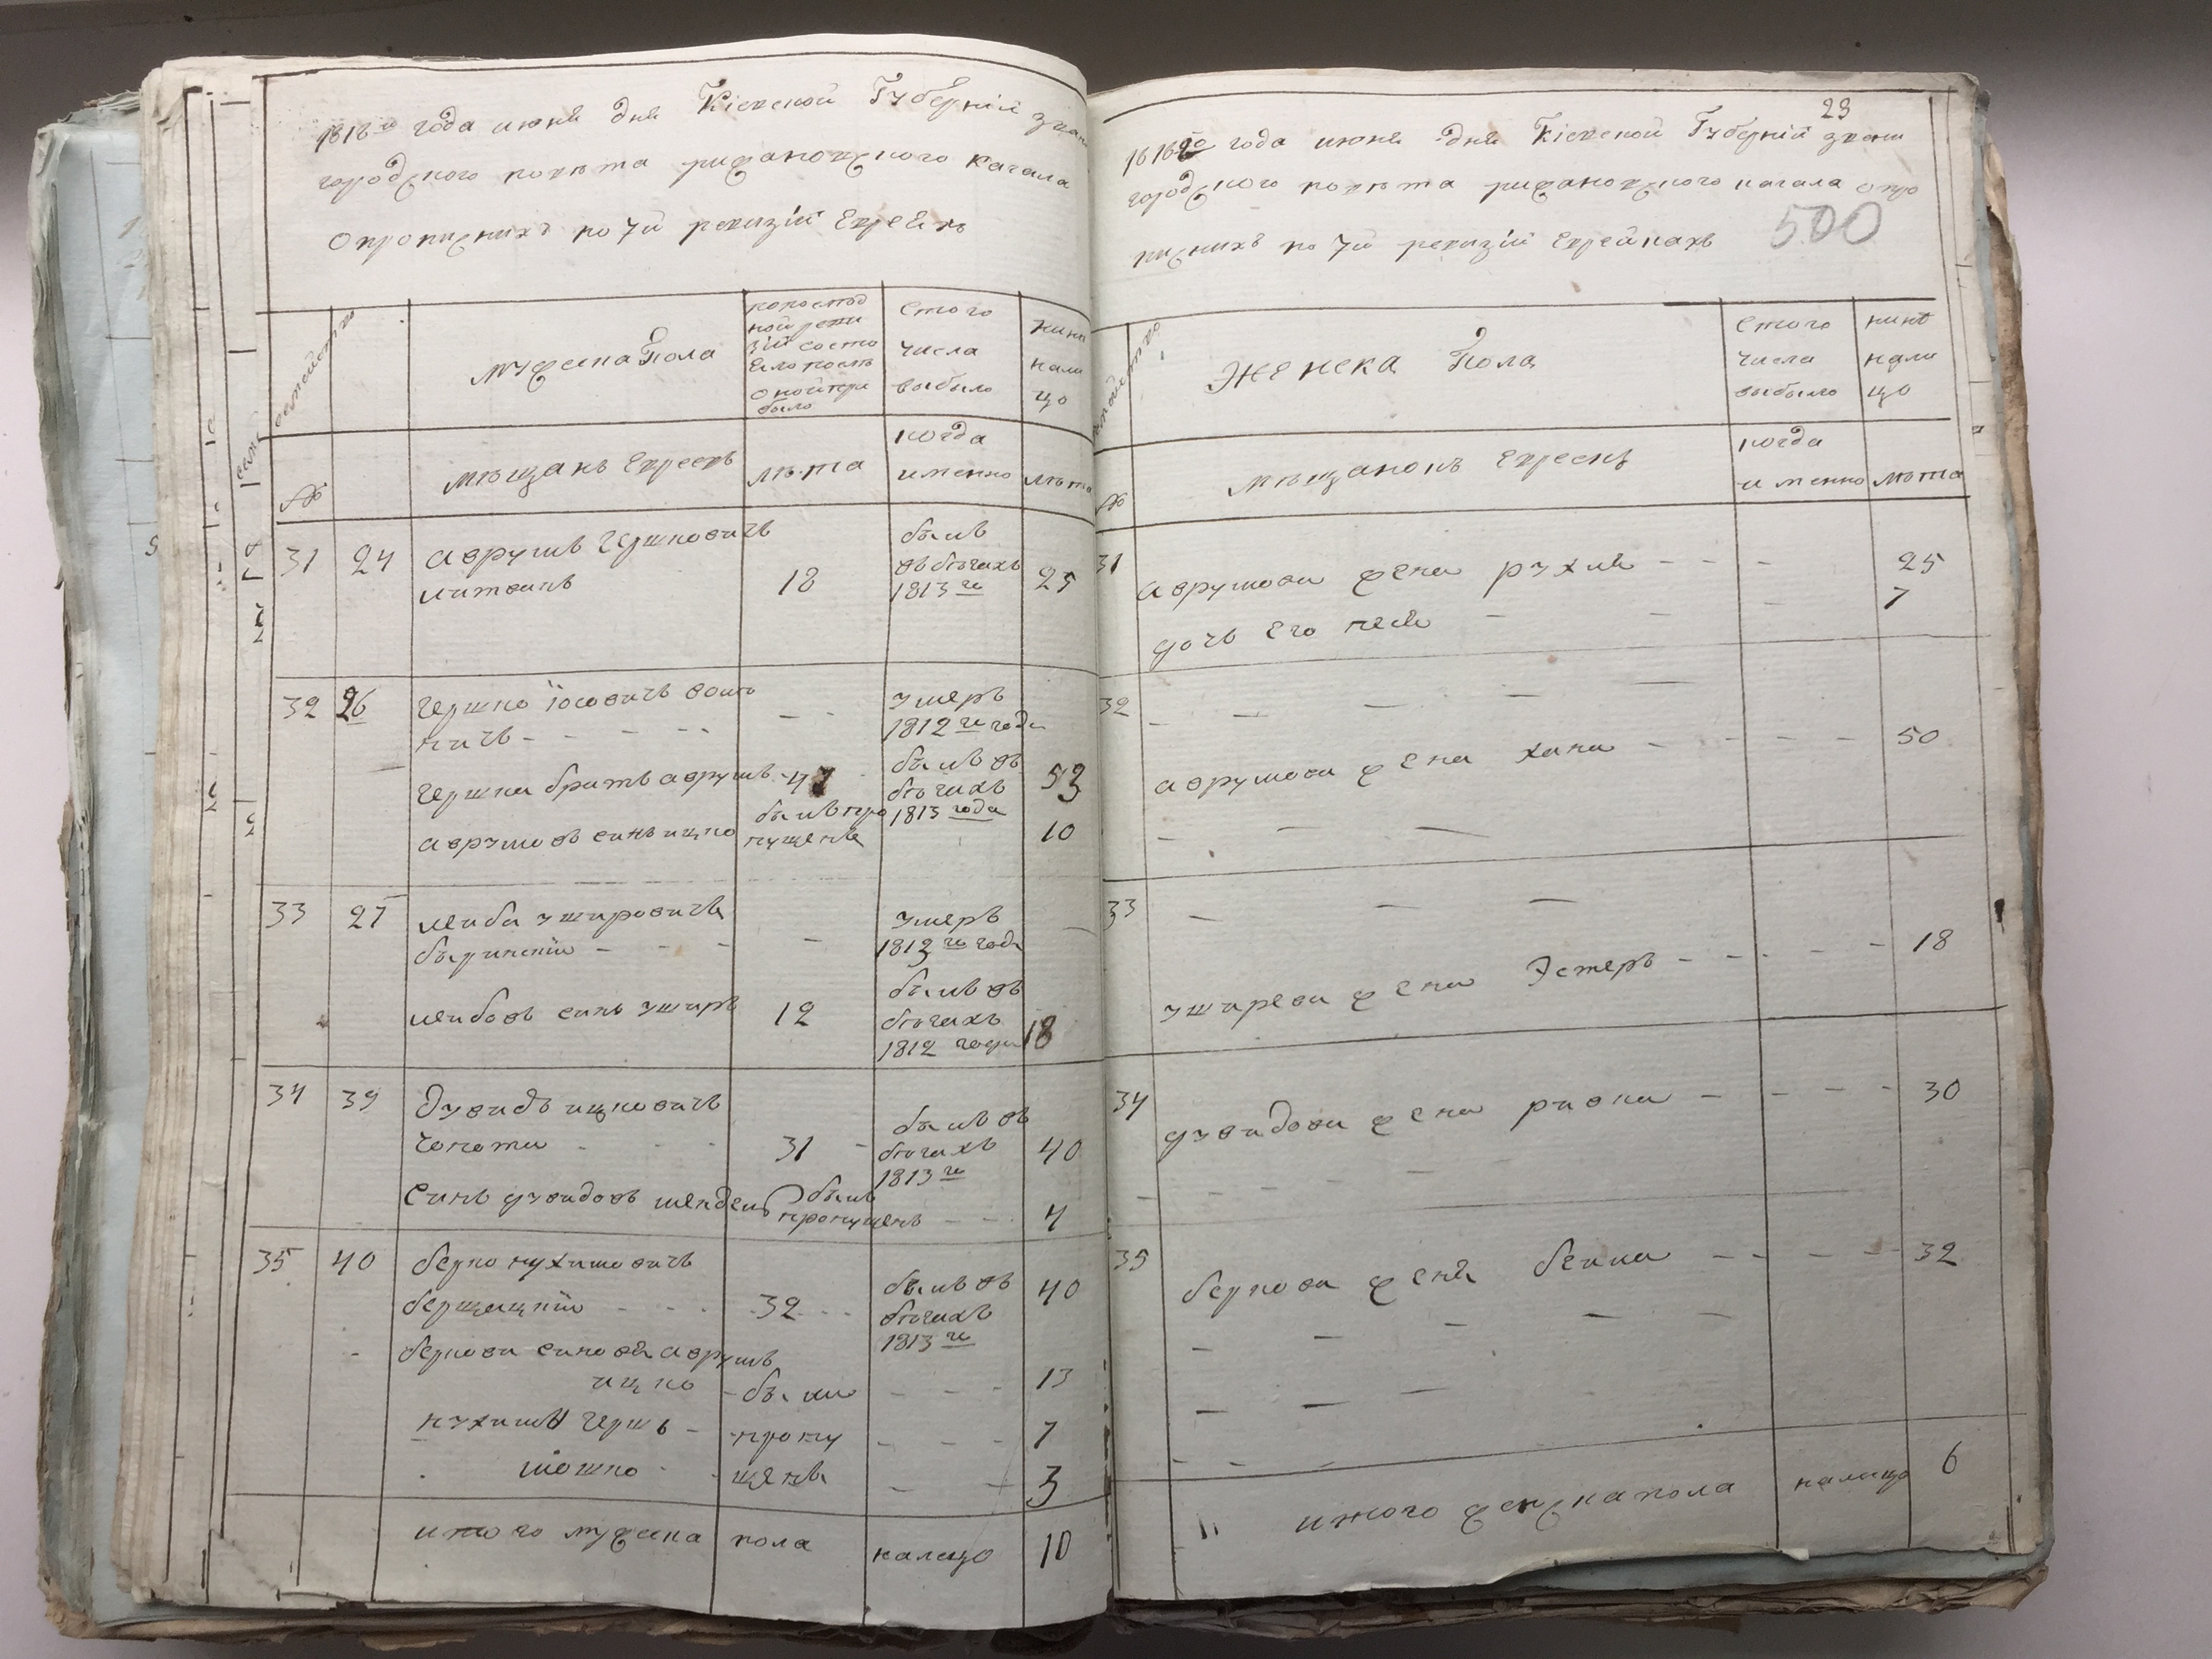 1818го года июня дня Кіевской Губерніи звени
городского повѣта рижановского кагала
опрописнихъ по 7й ревизіи Евреѣхъ
семейство
мужеска Пола
попослѣд
ной реви
зіи состо
яло и послѣ
оной при
было
стого
числа
выбыло
ныне
нали
цо
№
мѣщанъ Евреевъ
лѣта
когда
именно
лѣта
31 24 аврумъ Гершковичъ
литвинъ
18
былъ
въ бѣгахъ
1813го
25
32 26 Гершко іосовичъ
умеръ
1812го года
Гершка братъ аврумъ 47
былъ въ
бѣгахъ
1813 года
53
аврумовъ синъ ицко
былъ про
пущенъ
10
33 27 лейба ушировичъ
умеръ
1813го года
лейбовъ синъ уширъ 12
былъ въ
бѣгахъ
1812 года
18
34 39 дувидъ ицковичъ
31
былъ въ
бѣгахъ
1813го
40
Синъ дувидовъ мендель былъ
пропущенъ 4
35 40 берко нухимовичъ
бершацкій 32
былъ въ
бѣгахъ
1813го
40
беркови синовя аврумъ
ицко были 13
нухимъ Гершъ пропу 7
мошко щенѣ 3
итого мужеска пола налицо 10
23
1818го года июня дня Кіевской Губерніи звени
городского повѣта рижановского кагала опро
писнихъ по 7й ревизіи Еврейкахъ
500
семейство
Женска Пола
стого
числа
выбыло
нинѣ
нали
цо
№
мѣщанокъ Евреекъ
когда
именно
лѣта
31 аврумова жена рухля 25
дочь его песя 7
32
аврумова жена хана 50
33
уширова жена Эстеръ 18
34 дувидова жена ривка 30
35 беркова женя бейла 32
итого женска пола налицо 6